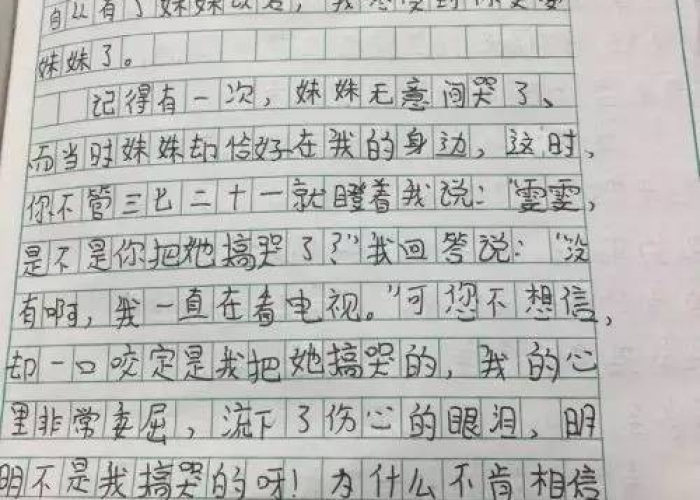 自从有了妹妹以后，我感受到你更爱
妹妹了。
记得有一次，妹妹无意间哭了、
而当时妹妹却恰好在我的身边，这时，
你不管三七二十一就瞪着我说：“雯雯，
是不是你把她搞哭了？”我回答说：“没
有啊，我一直在看电视。”可您不想信，
却一口咬定是我把她搞哭的，我的心
里非常委屈，流下了伤心的眼泪，明
明不是我搞哭的呀！为什么不肯相信